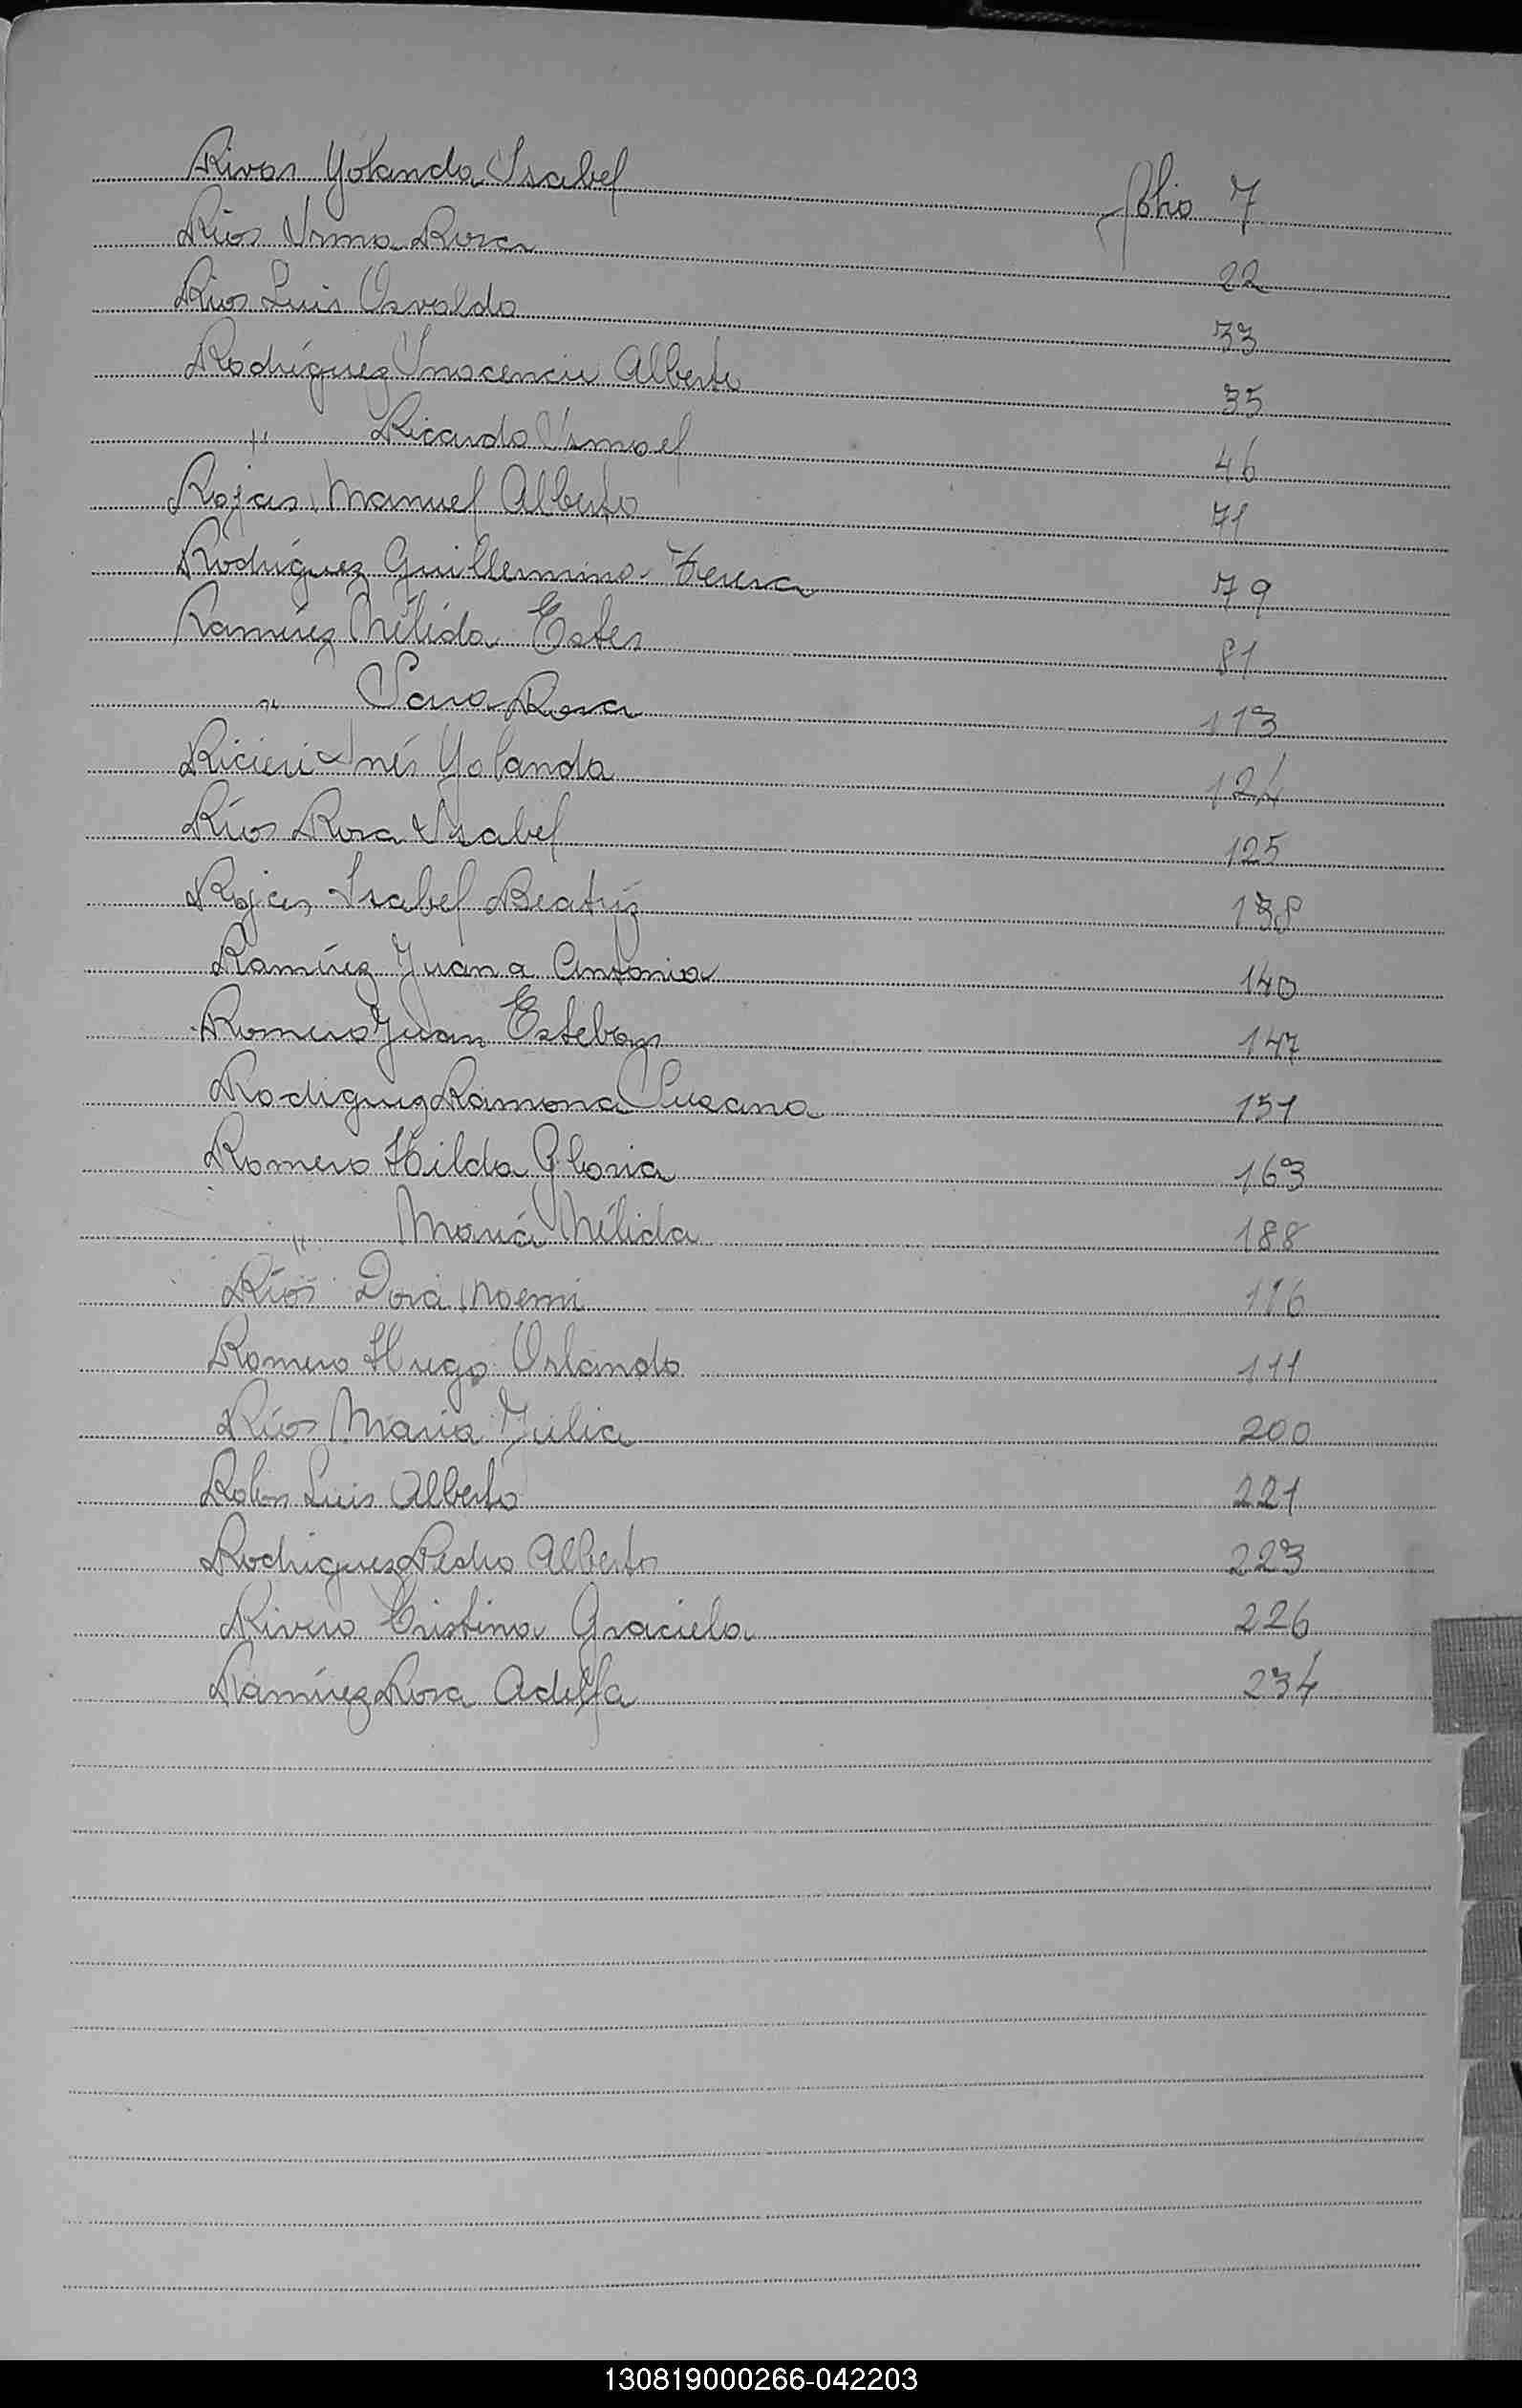 Rivas Yolanda Isabel folio 7
Ríos Irma Rosa 22
Ríos Luis Osvaldo 33
Rodríguez Inocencio Alberto 35
" Ricardo Ismael 46
Rojas Manuel Alberto 71
Rodríguez Guillermina Teresa 79
Ramírez Nélida Ester 81
" Sara Rosa 113
Ricieri Inés Yolanda 124
Ríos Rosa Isabel 125
Rojas Isabel Beatríz 138
Ramírez Juana Antonia 140
Romero Juan Esteban 147
Rodiguez Ramona Susana 151
Romero Hilda Gloria 163
" María Nélida 188
Ríos Dora Noemi
Romero Hugo Orlando
Ríos María Julia 200
Luis Alberto 221
Rodriguez Pedro Alberto 223
Rivero Cristina Graciela 226
Ramírez Rosa Adelfa 234
130819000266-042203